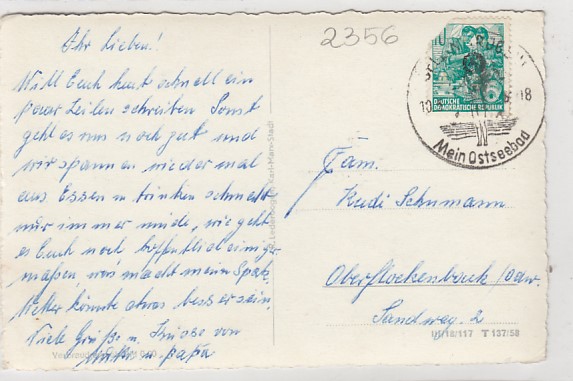 Ihr Lieben!
Will Euch heut schnell ein
paar Zeilen schreiben Sonst
geht es uns noch gut und
wir spannen wieder mal
aus Essen u trinken schmeckt
nur immer müde, wie geht
es Euch noch, hoffentlich einiger
maßen, was macht mein Spatz
Wetter könnte etwas besser sein.
Viele Grüße u. Küsse von
Mutti u papa
2356
DEUTSCHE
DEMOKRATISCHE REPUBLIK
10
18
Mein Ostseebad
Fam.
Rudi Schumann
Oberflockenbach/Odw.
Sandweg 2
III/18/117 T 137/58
Karl-Marx-Stadt